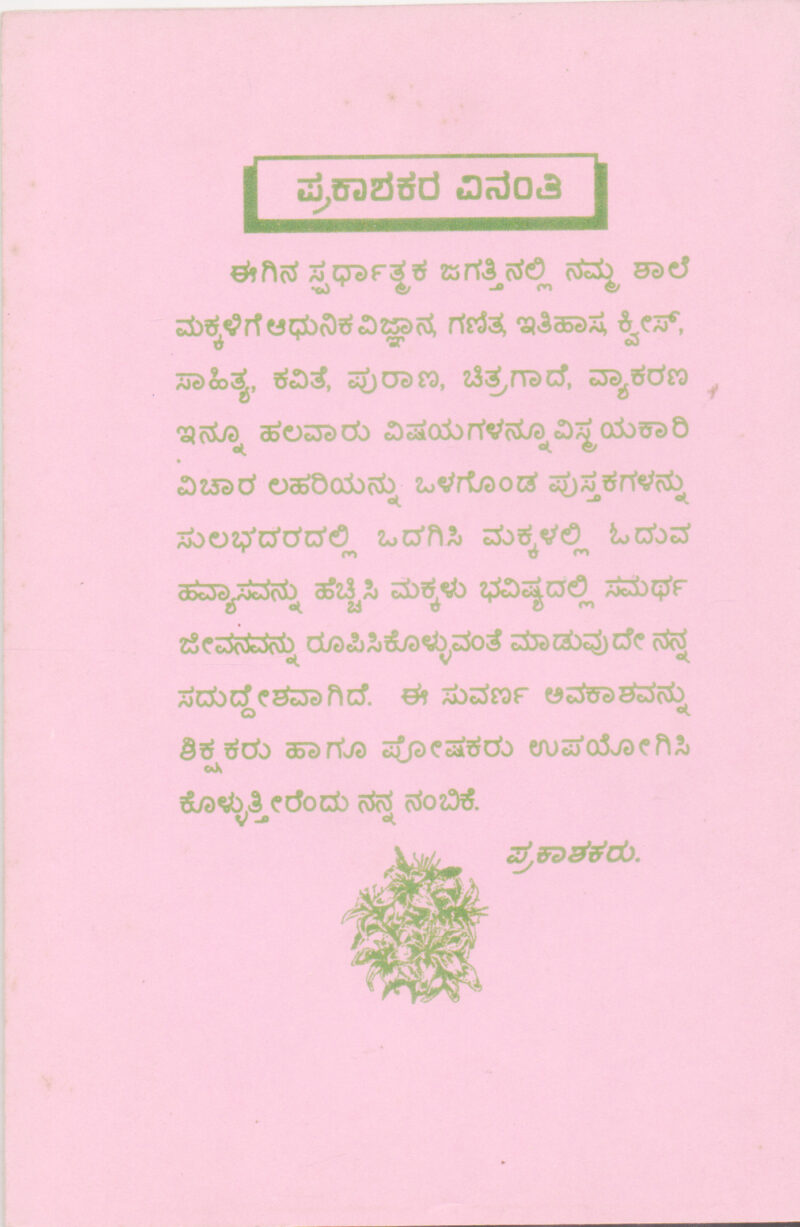 ಪ್ರಕಾಶಕರ ವಿನಂತಿ
ಈಗಿನ ಸ್ಪರ್ಧಾತ್ಮಕ ಜಗತ್ತಿನಲ್ಲಿ ನಮ್ಮ ಶಾಲೆ
ಮಕ್ಕಳಿಗೆ ಆಧುನಿಕ ವಿಜ್ಞಾನ, ಗಣಿತ, ಇತಿಹಾಸ, ಕ್ವೀಸ್,
ಸಾಹಿತ್ಯ, ಕವಿತೆ, ಪುರಾಣ, ಚಿತ್ರಗಾದೆ, ವ್ಯಾಕರಣ
ಇನ್ನೂ ಹಲವಾರು ವಿಷಯಗಳನ್ನೂ ವಿಸ್ಮಯಕಾರಿ
ವಿಚಾರ ಲಹರಿಯನ್ನು ಒಳಗೊಂಡ ಪುಸ್ತಕಗಳನ್ನು
ಸುಲಭದರದಲ್ಲಿ ಒದಗಿಸಿ ಮಕ್ಕಳಲ್ಲಿ ಓದುವ
ಹವ್ಯಾಸವನ್ನು ಹೆಚ್ಚಿಸಿ ಮಕ್ಕಳು ಭವಿಷ್ಯದಲ್ಲಿ ಸಮರ್ಥ
ಜೀವನವನ್ನು ರೂಪಿಸಿಕೊಳ್ಳುವಂತೆ ಮಾಡುವುದೇ ನನ್ನ
ಸದುದ್ದೇಶವಾಗಿದೆ. ಈ ಸುವರ್ಣ ಅವಕಾಶವನ್ನು
ಶಿಕ್ಷಕರು ಹಾಗೂ ಪೋಷಕರು ಉಪಯೋಗಿಸಿ
ಕೊಳ್ಳುತ್ತೀರೆಂದು ನನ್ನ ನಂಬಿಕೆ.
ಪ್ರಕಾಶಕರು.